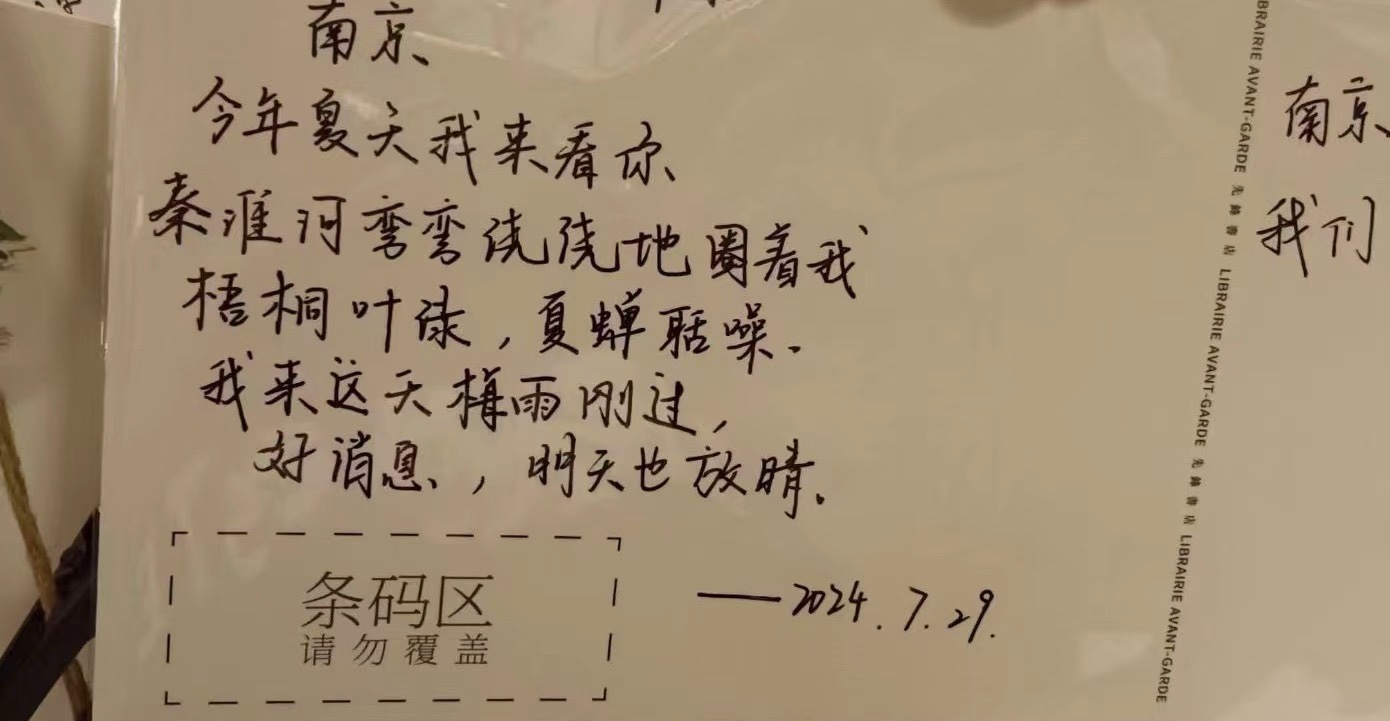 南京
今年夏天我来看你
秦淮河弯弯绕绕地圈着我
梧桐叶绿，夏蝉聒噪.
我来这天梅雨刚过，
好消息，明天也放晴。
条码区
请勿覆盖
——2024.7.29.
BRAIRIE AVANT-GARDE 先鋒書店 LIBRAIRIE AVANT-GARDE 先鋒書店 LIBRAIRIE AVANT-GARDE
南京
我们